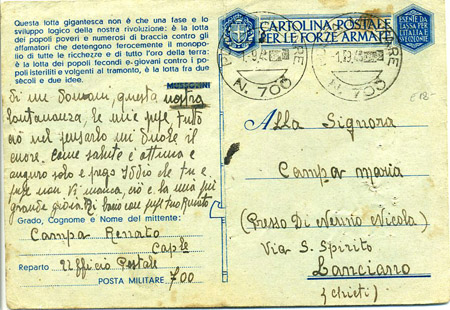 Questa lotta gigantesca non è che una fase e lo
sviluppo logico della nostra rivoluzione: è la lotta
dei popoli poveri e numerosi di braccia contro gli
affamatori che detengono ferocemente il monopo-
lio di tutte le ricchezze e di tutto l'oro della terra:
è la lotta dei popoli fecondi e giovani contro i po-
poli isteriliti e volgenti al tramonto, è la lotta fra due
secoli e due idee.
MUSSOLINI
Di un domani, questa nostra
lontananza, è tutto
ciò nel pensarlo mi duole il
cuore. Come salute è ottima e
auguro solo e prego Iddio che tu e
non vi manca, ciò è la mia più
grande gioia. Di
Grado, Cognome e Nome del mittente:
Campa Renato
Cap.le
Reparto Ufficio Postale
POSTA MILITARE 700
CARTOLINA POSTALE
PER LE FORZE ARMATE
ESENTE DA
TASSA PER
L'ITALIA E
LE COLONIE
N. 700
N. 700
Alla Signora
Campa Maria
(Presso Di Nennio Nicola)
Via S. Spirito
Lanciano
(Chieti)